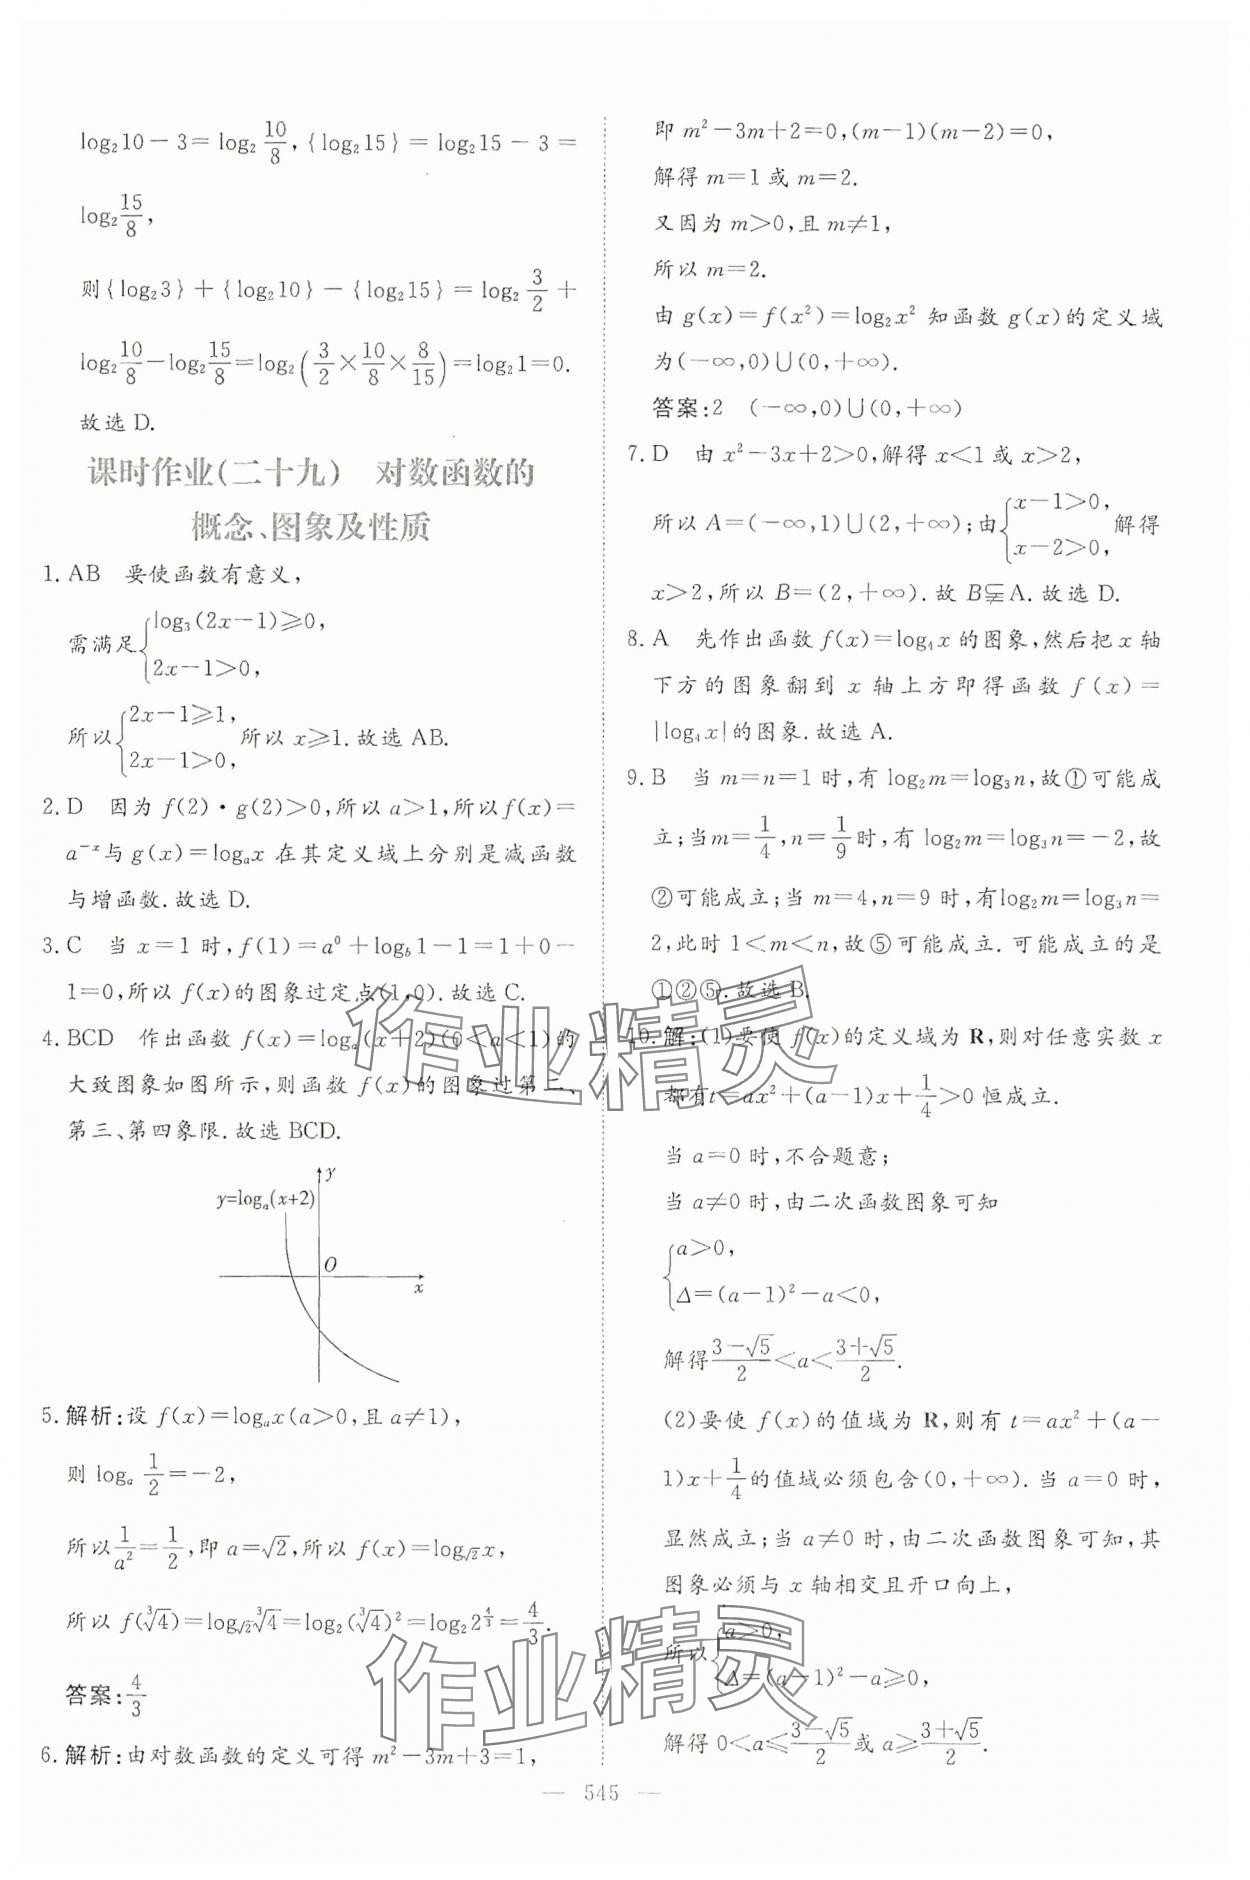 log₂10－3＝log₂ 10/8,{log₂15}＝log₂15－3＝
log₂ 15/8,
则{log₂3}＋{log₂10}－{log₂15}＝log₂ 3/2＋
log₂ 10/8－log₂ 15/8＝log₂(3/2×10/8×8/15)＝log₂1＝0.
故选 D.
课时作业(二十九)　对数函数的
概念、图象及性质
1. AB　要使函数有意义,
需满足{log₃(2x－1)≥0,
2x－1>0,
所以{2x－1≥1,
2x－1>0, 所以 x≥1.故选 AB.
2. D　因为 f(2)·g(2)>0,所以 a>1,所以 f(x)＝
a⁻ˣ与 g(x)＝logₐx 在其定义域上分别是减函数
与增函数.故选 D.
3. C　当 x＝1 时,f(1)＝a⁰＋log_b1－1＝1＋0－
1＝0,所以 f(x)的图象过定点(1,0).故选 C.
4. BCD　作出函数 f(x)＝logₐ(x＋2)(0<a<1)的
大致图象如图所示,则函数 f(x)的图象过第二、
第三、第四象限.故选 BCD.
y
y=logₐ(x+2)
O
x
5. 解析:设 f(x)＝logₐx(a>0,且 a≠1),
则 logₐ 1/2＝－2,
所以 1/a²＝1/2,即 a＝√2,所以 f(x)＝log_√2 x,
所以 f(∛4)＝log_√2 ∛4＝log₂(∛4)²＝log₂2^(4/3)＝4/3.
答案:4/3
6. 解析:由对数函数的定义可得 m²－3m＋3＝1,
即 m²－3m＋2＝0,(m－1)(m－2)＝0,
解得 m＝1 或 m＝2.
又因为 m>0,且 m≠1,
所以 m＝2.
由 g(x)＝f(x²)＝log₂x² 知函数 g(x)的定义域
为(－∞,0)∪(0,＋∞).
答案:2　(－∞,0)∪(0,＋∞)
7. D　由 x²－3x＋2>0,解得 x<1 或 x>2,
所以 A＝(－∞,1)∪(2,＋∞);由{x－1>0,
x－2>0, 解得
x>2,所以 B＝(2,＋∞).故 B⫋A.故选 D.
8. A　先作出函数 f(x)＝log₄x 的图象,然后把 x 轴
下方的图象翻到 x 轴上方即得函数 f(x)＝
|log₄x|的图象.故选 A.
9. B　当 m＝n＝1 时,有 log₂m＝log₃n,故①可能成
立;当 m＝1/4,n＝1/9时,有 log₂m＝log₃n＝－2,故
②可能成立;当 m＝4,n＝9 时,有log₂m＝log₃n＝
2,此时 1<m<n,故⑤可能成立.可能成立的是
①②⑤.故选 B.
10. 解:(1)要使 f(x)的定义域为 R,则对任意实数 x
都有 t＝ax²＋(a－1)x＋1/4>0 恒成立.
当 a＝0 时,不合题意;
当 a≠0 时,由二次函数图象可知
{a>0,
Δ＝(a－1)²－a<0,
解得 (3－√5)/2<a<(3＋√5)/2.
(2)要使 f(x)的值域为 R,则有 t＝ax²＋(a－
1)x＋1/4的值域必须包含(0,＋∞).当 a＝0 时,
显然成立;当 a≠0 时,由二次函数图象可知,其
图象必须与 x 轴相交且开口向上,
所以{a>0,
Δ＝(a－1)²－a≥0,
解得 0<a≤(3－√5)/2或 a≥(3＋√5)/2.
— 545 —
作业精灵
作业精灵